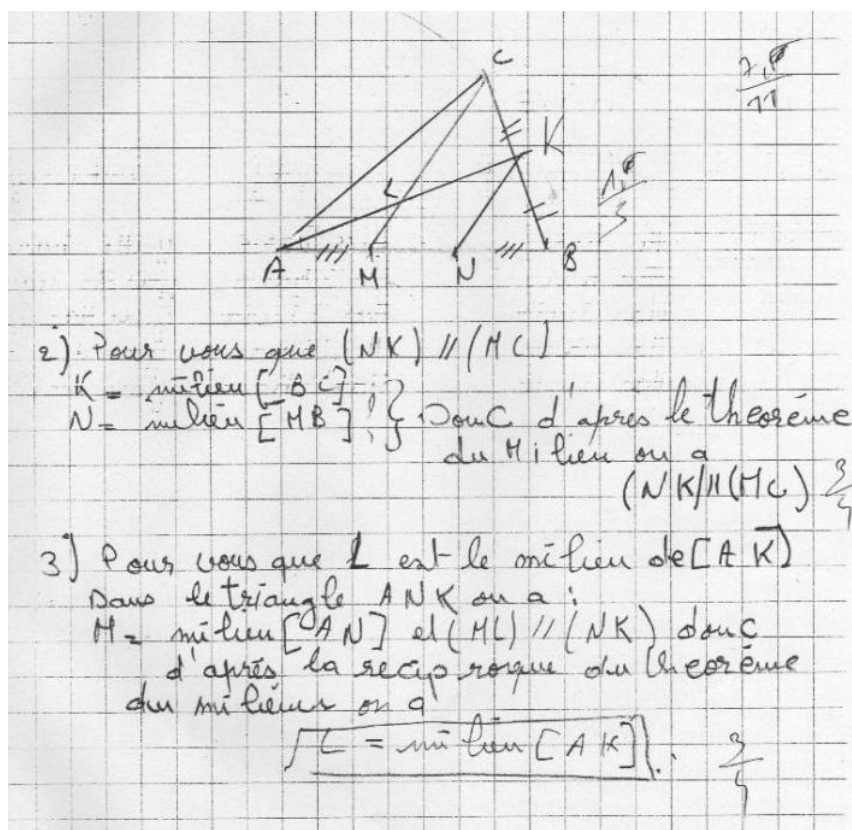 C
K
L
A
M
N
B
2) Pour vous que (NK) // (MC)
K = milieu [BC]
N = milieu [MB] } Donc d'après le theorème
du Milieu on a
(NK) // (MC)
3) Pour vous que L est le milieu de [AK]
Dans le triangle ANK on a :
M = milieu [AN] et (ML) // (NK) donc
d'après la reciproque du theorème
du milieux on a
L = milieu [AK].
3